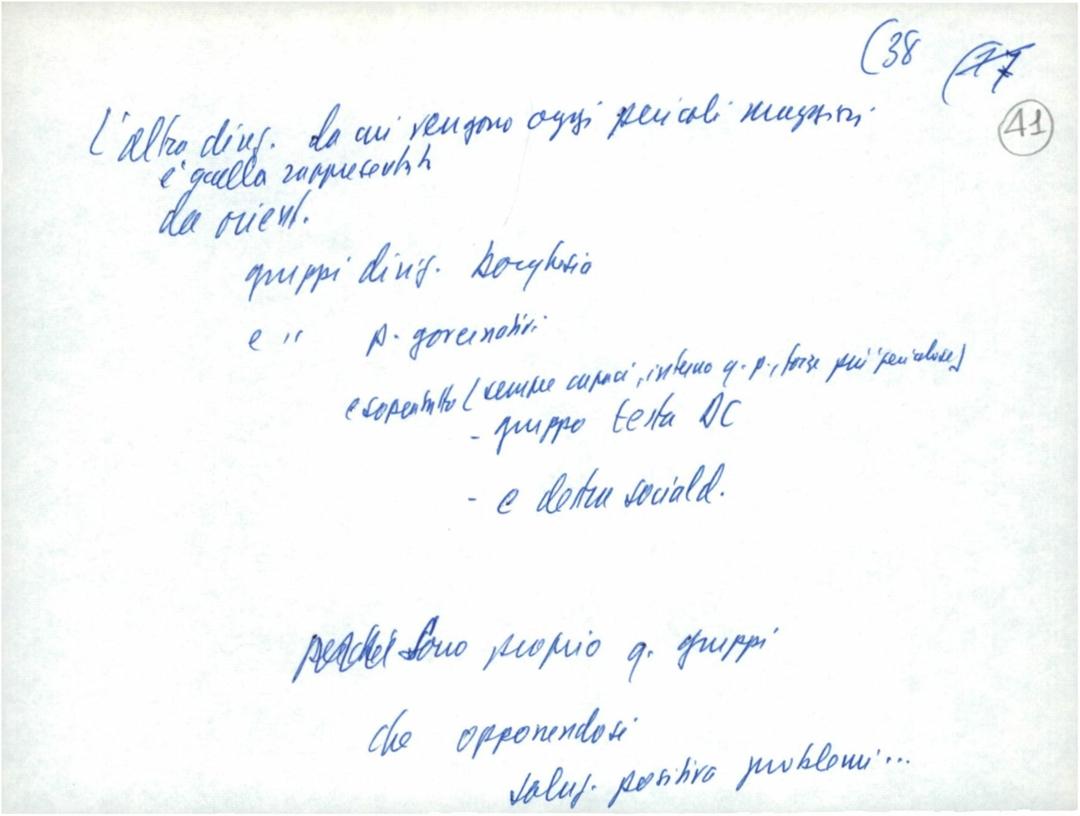 (38 (77
41
L'altra direz. da cui vengono oggi pericoli maggiori
è quella rappresentata
da orient.
gruppi dirig. borghesia
e " p. governativi
e soprattutto (sempre capaci, interno q. p., forze più pericolose)
- gruppo testa DC
- e destra sociald.
perché sono proprio q. gruppi
che opponendosi
soluz. positiva problemi...